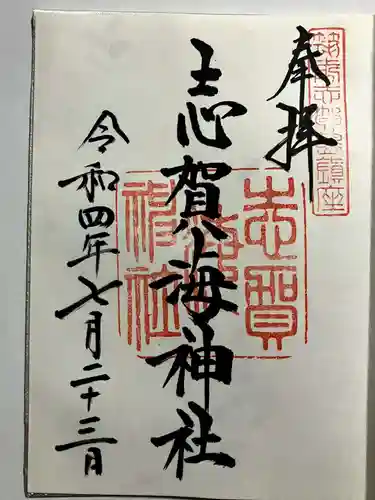 奉拝
志賀海神社
令和四年七月二十三日
志賀
海
神社